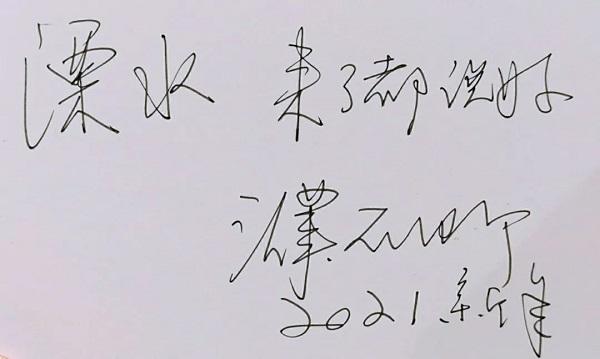 溧水 来了都说好
濮存昕
2021.新年